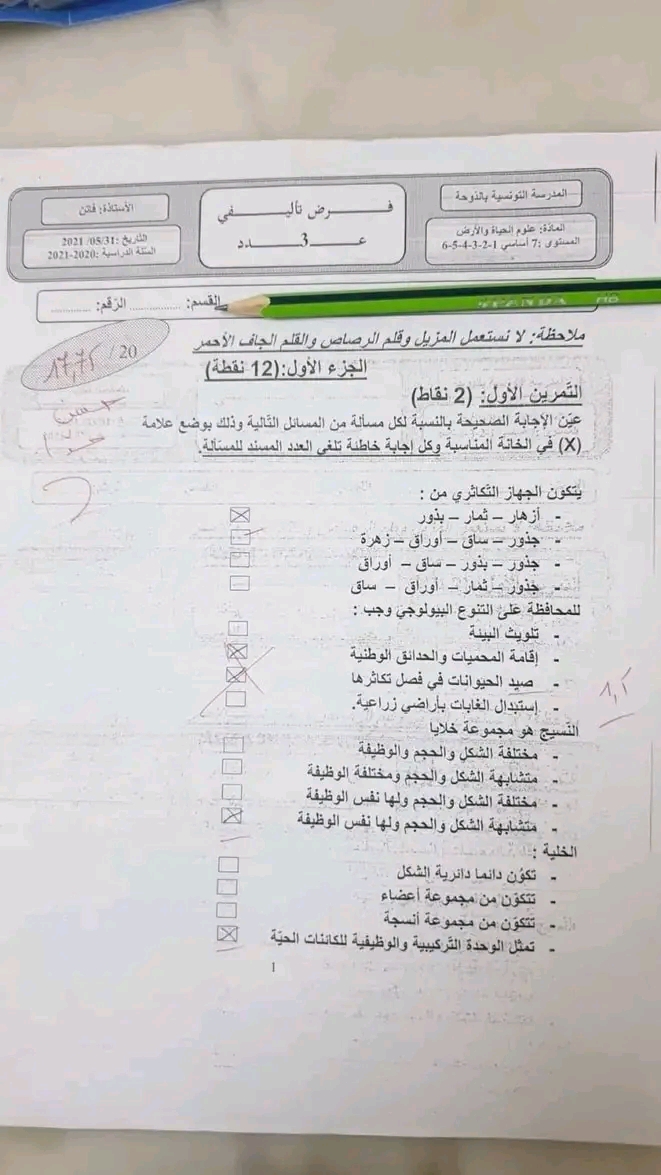 المدرسة التونسية بالدوحة
المادة: علوم الحياة والأرض
المستوى :7 أساسي 1-2-3-4-5-6
فرض تأليفي
عـــ3ــدد
الأستاذة: فاتن
التاريخ: 31/05/ 2021
السنة الدراسية: 2020-2021
القسم: .............. الرقم: ...........
ملاحظة: لا نستعمل المزيل وقلم الرصاص والقلم الجاف الأحمر
17,75 / 20
حسن جدا
الجزء الأول: (12 نقطة)
التمرين الأول: (2 نقاط)
عيّن الإجابة الصحيحة بالنسبة لكل مسألة من المسائل التالية وذلك بوضع علامة
(X) في الخانة المناسبة وكل إجابة خاطئة تلغي العدد المسند للمسألة.
يتكون الجهاز التكاثري من :
- أزهار – ثمار – بذور
- جذور – ساق – أوراق – زهرة
- جذور – بذور – ساق – أوراق
- جذور – ثمار – أوراق – ساق
للمحافظة على التنوع البيولوجي وجب :
- تلويث البيئة
- إقامة المحميات والحدائق الوطنية
- صيد الحيوانات في فصل تكاثرها
- إستبدال الغابات بأراضي زراعية.
1,5
النسيج هو مجموعة خلايا
- مختلفة الشكل والحجم والوظيفة
- متشابهة الشكل والحجم ومختلفة الوظيفة
- مختلفة الشكل والحجم ولها نفس الوظيفة
- متشابهة الشكل والحجم ولها نفس الوظيفة
الخلية :
- تكوّن دائما دائرية الشكل
- تتكوّن من مجموعة أعضاء
- تتكوّن من مجموعة أنسجة
- تمثل الوحدة التركيبية والوظيفية للكائنات الحيّة
1